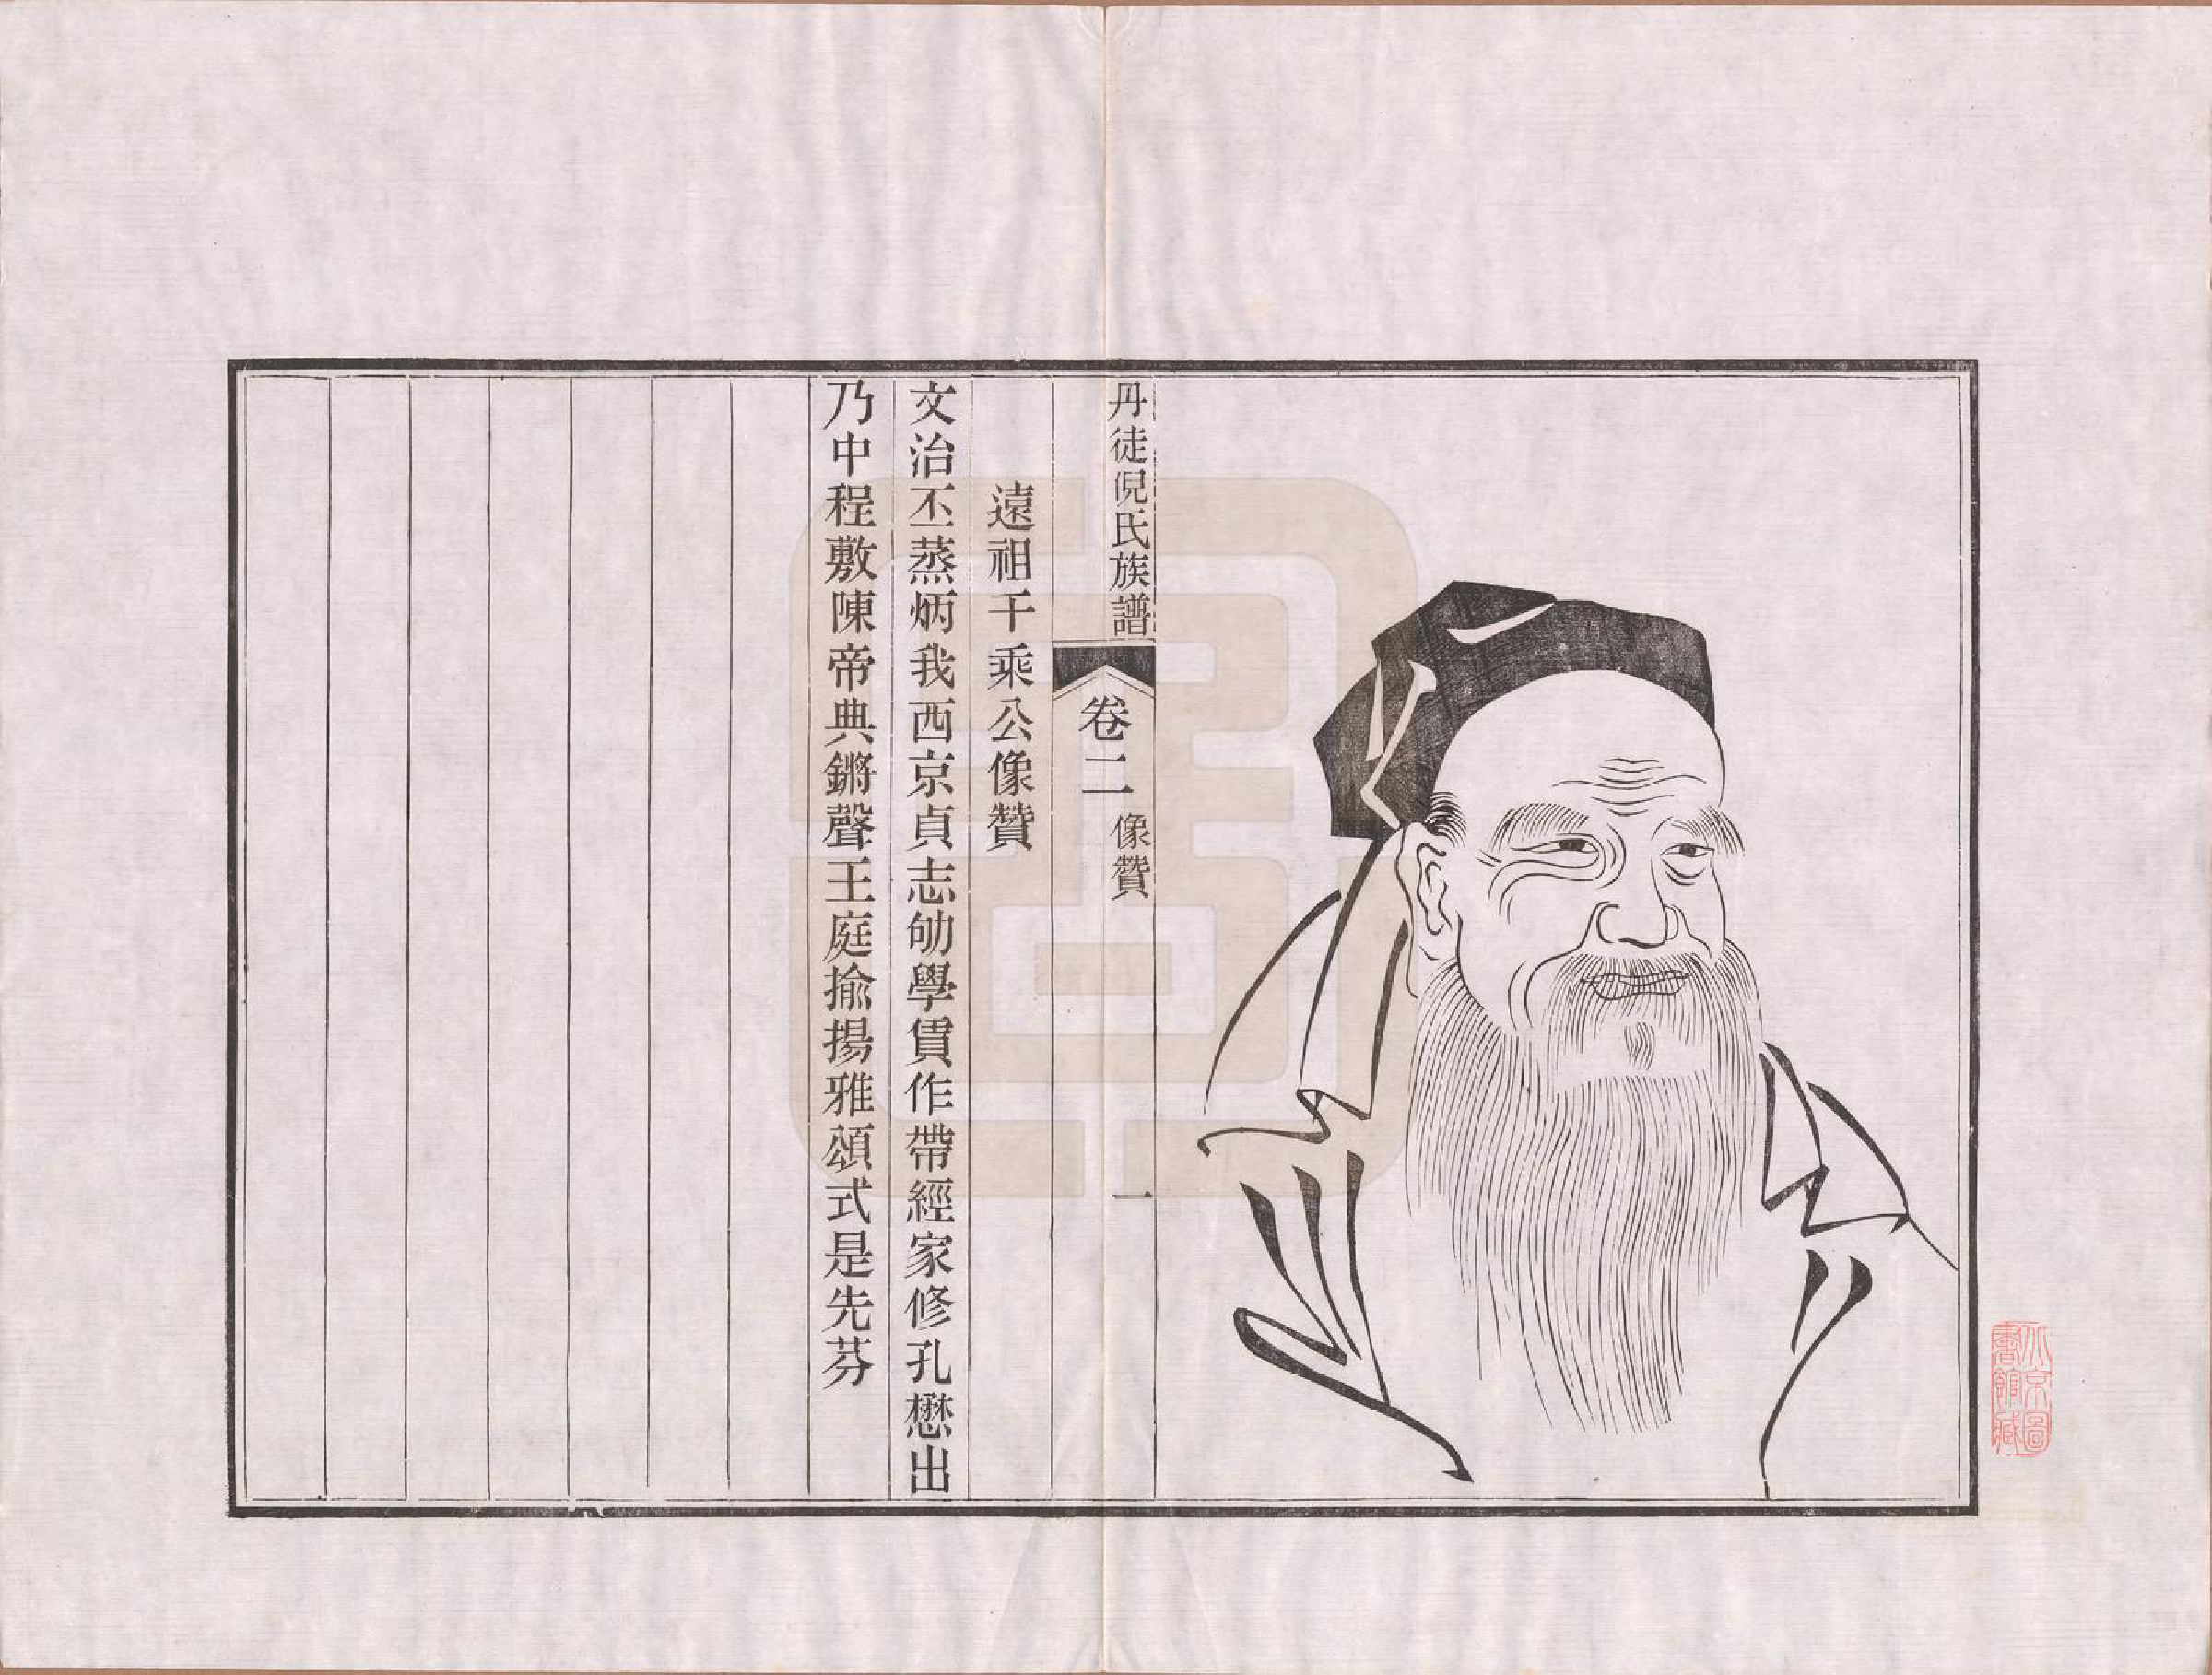 丹徒倪氏族譜
卷二
像贊
一
遠祖千乘公像贊
文治丕蒸炳我西京貞志劬學賃作帶經家修孔懋出
乃中程敷陳帝典鏘聲王庭揄揚雅頌式是先芬
北京圖
書館藏